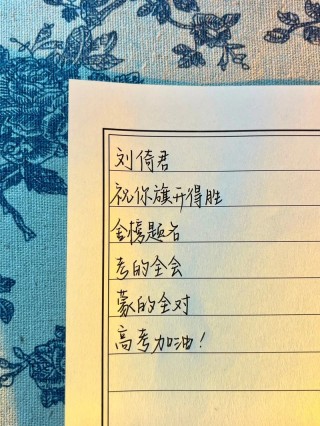 刘倚君
祝你旗开得胜
金榜题名
考的全会
蒙的全对
高考加油！